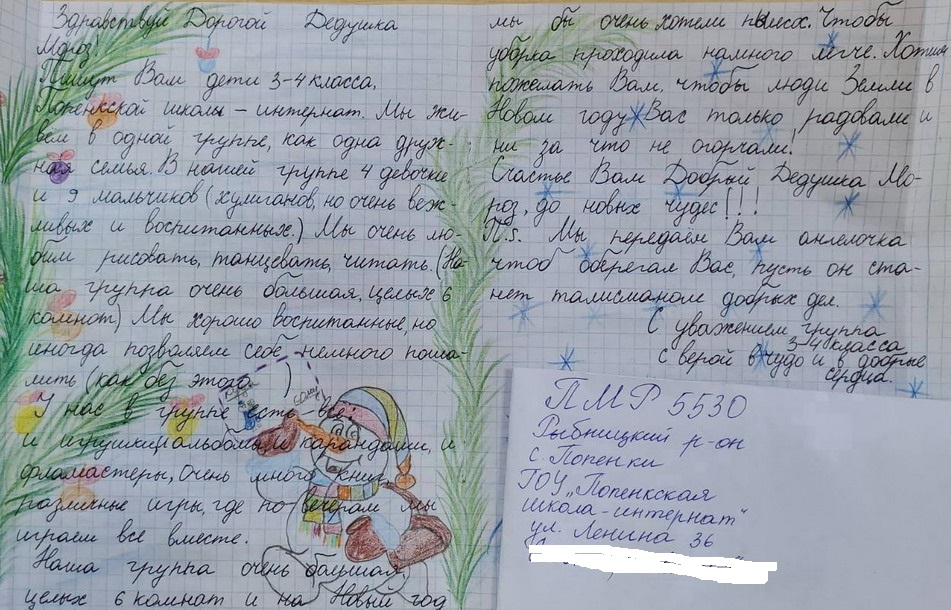 Здравствуй Дорогой Дедушка
Мороз
Пишут Вам дети 3-4 класса,
Попенкской школы – интернат. Мы жи-
вем в одной группе, как одна друж-
ная семья. В нашей группе 4 девочки
и 9 мальчиков (хулиганов, но очень веж-
ливых и воспитанных.) Мы очень лю-
бим рисовать, танцевать, читать. (На-
ша группа очень большая, целых 6
комнат) Мы хорошо воспитанные, но
иногда позволяем себе немного поша-
лить (как без этого )
У нас в группе есть все:
и игрушки, и альбомы, и карандаши, и
фломастеры, Очень много книг,
различные игры, где по вечерам мы
играем все вместе.
Наша группа очень большая,
целых 6 комнат и на Новый год
мы бы очень хотели пылесос. Чтобы
уборка проходила намного легче. Хотим
пожелать Вам, чтобы люди Земли в
Новом году Вас только радовали и
ни за что не огорчали!
Счастье Вам Добрый Дедушка Мо-
роз, до новых чудес!!!
П.s. Мы передаём Вам ангелочка
чтоб оберегал Вас, пусть он ста-
нет талисманом добрых дел.
С уважением группа
3-4 класса
с верой в чудо и в добрые
сердца.
ПМР 5530
Рыбницкий р-он
с. Попенки
ГОУ „Попенкская
школа-интернат"
ул. Ленина 36